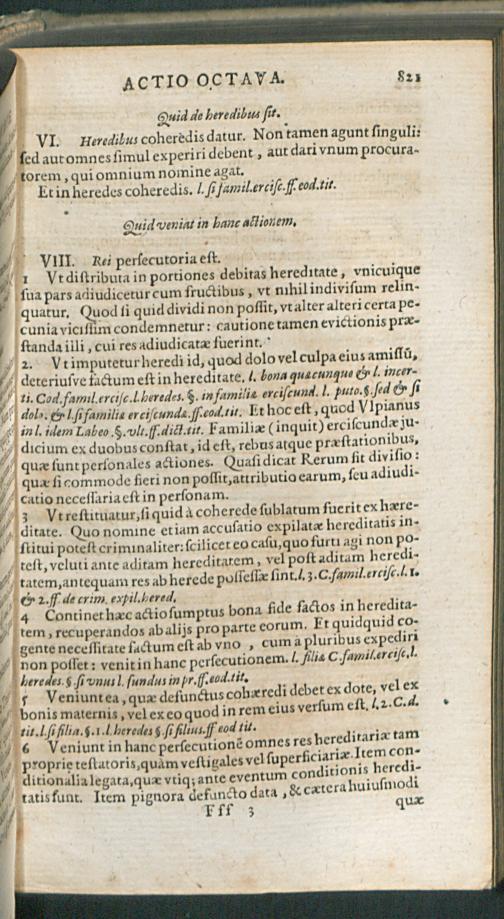 ACTIO OCTAVA. 821
Quid de heredibus sit.
VI. Heredibus coherèdis datur. Non tamen agunt singuli:
sed aut omnes simul experiri debent, aut dari vnum procura-
torem, qui omnium nomine agat.
Et in heredes coheredis. l. si famil. ercisc. ff. eod. tit.
Quid veniat in hanc actionem.
VIII. Rei persecutoria est.
1 Vt distributa in portiones debitas hereditate, vnicuique
sua pars adiudicetur cum fructibus, vt nihil indivisum relin-
quatur. Quod si quid dividi non possit, vt alter alteri certa pe-
cunia vicissim condemnetur: cautione tamen evictionis præ-
standa illi, cui res adiudicatæ fuerint.
2. Vt imputetur heredi id, quod dolo vel culpa eius amissũ,
deteriusve factum est in hereditate. l. bona quæcunque & l. incer-
ti. Cod. famil. ercisc. l. heredes. §. in familiæ erciscund. l. puto. §. sed & si
dolo. & l. si familiæ erciscundæ. ff. eod. tit. Et hoc est, quod Vlpianus
in l. idem Labeo. §. vlt. ff. dict. tit. Familiæ (inquit) erciscundæ ju-
dicium ex duobus constat, id est, rebus atque præstationibus,
quæ sunt personales actiones. Quasi dicat Rerum sit divisio:
quæ si commode fieri non possit, attributio earum, seu adiudi-
catio necessaria est in personam.
3 Vt restituatur, si quid à coherede sublatum fuerit ex hære-
ditate. Quo nomine etiam accusatio expilatæ hereditatis in-
stitui potest criminaliter: scilicet eo casu, quo furti agi non po-
test, veluti ante aditam hereditatem, vel post aditam heredi-
tatem, antequam res ab herede possessæ sint. l. 3. C. famil. ercisc. l. 1.
& 2. ff. de crim. expil. hered.
4 Continet hæc actio sumptus bona fide factos in heredita-
tem, recuperandos ab alijs pro parte eorum. Et quidquid co-
gente necessitate factum est ab vno, cum à pluribus expediri
non posset: venit in hanc persecutionem. l. filiæ C. famil. ercisc. l.
heredes. §. si vnus l. fundus in pr. ff. eod. tit.
5 Veniunt ea, quæ defunctus cohæredi debet ex dote, vel ex
bonis maternis, vel ex eo quod in rem eius versum est. l. 2. C. d.
tit. l. si filia. §. 1. l. heredes §. si filius. ff eod tit.
6 Veniunt in hanc persecutionẽ omnes res hereditariæ tam
proprię testatoris, quàm vestigales vel superficiariæ. Item con-
ditionalia legata, quæ vtiq; ante eventum conditionis heredi-
tatis sunt. Item pignora defuncto data, & cætera huiusmodi
Fff 3 quæ